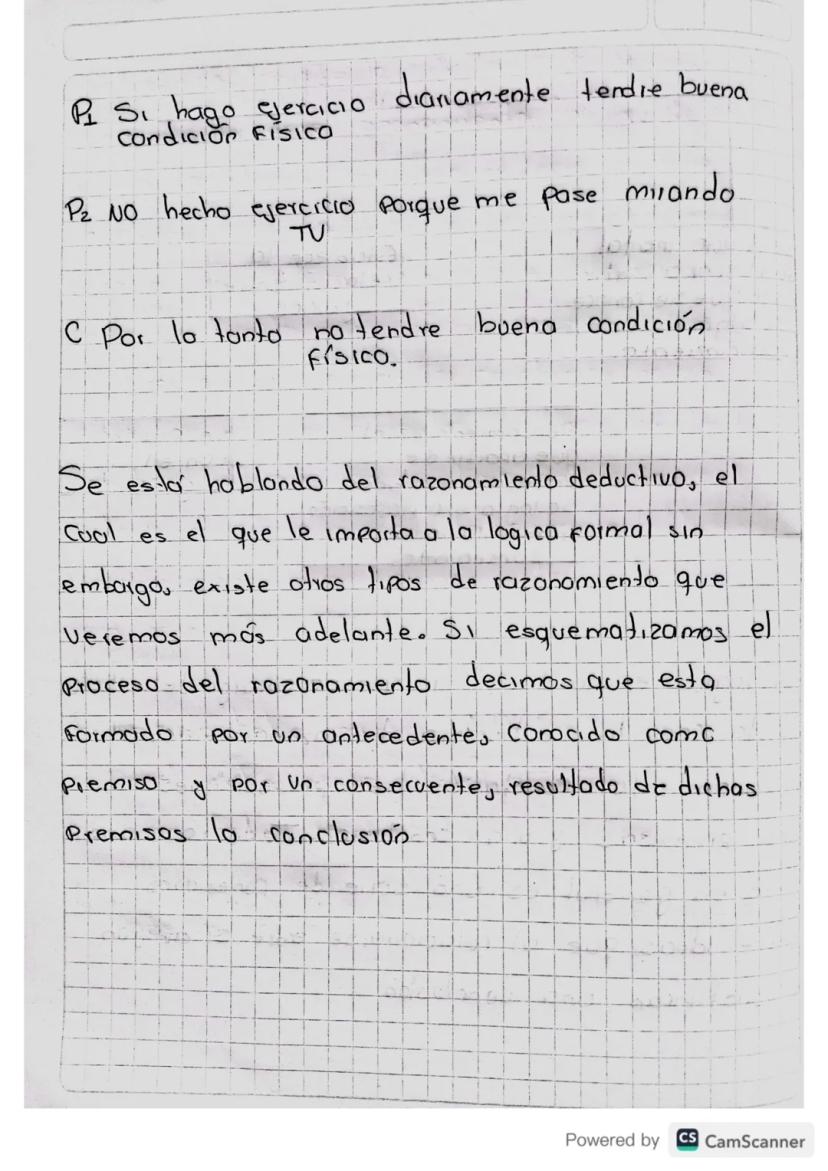 P1 Si hago ejercicio diariamente tendre buena
condición física
P2 NO hecho ejercicio porque me pase mirando
TV
C Por lo tanto no tendre buena condición
física.
Se está hablando del razonamiento deductivo, el
cual es el que le importa a la logica formal sin
embargo, existe otros tipos de razonamiento que
veremos más adelante. Si esquematizamos el
proceso del razonamiento decimos que esta
formado por un antecedente, conocido como
premisa y por un consecuente, resultado de dichas
premisas la conclusión
Powered by CS CamScanner